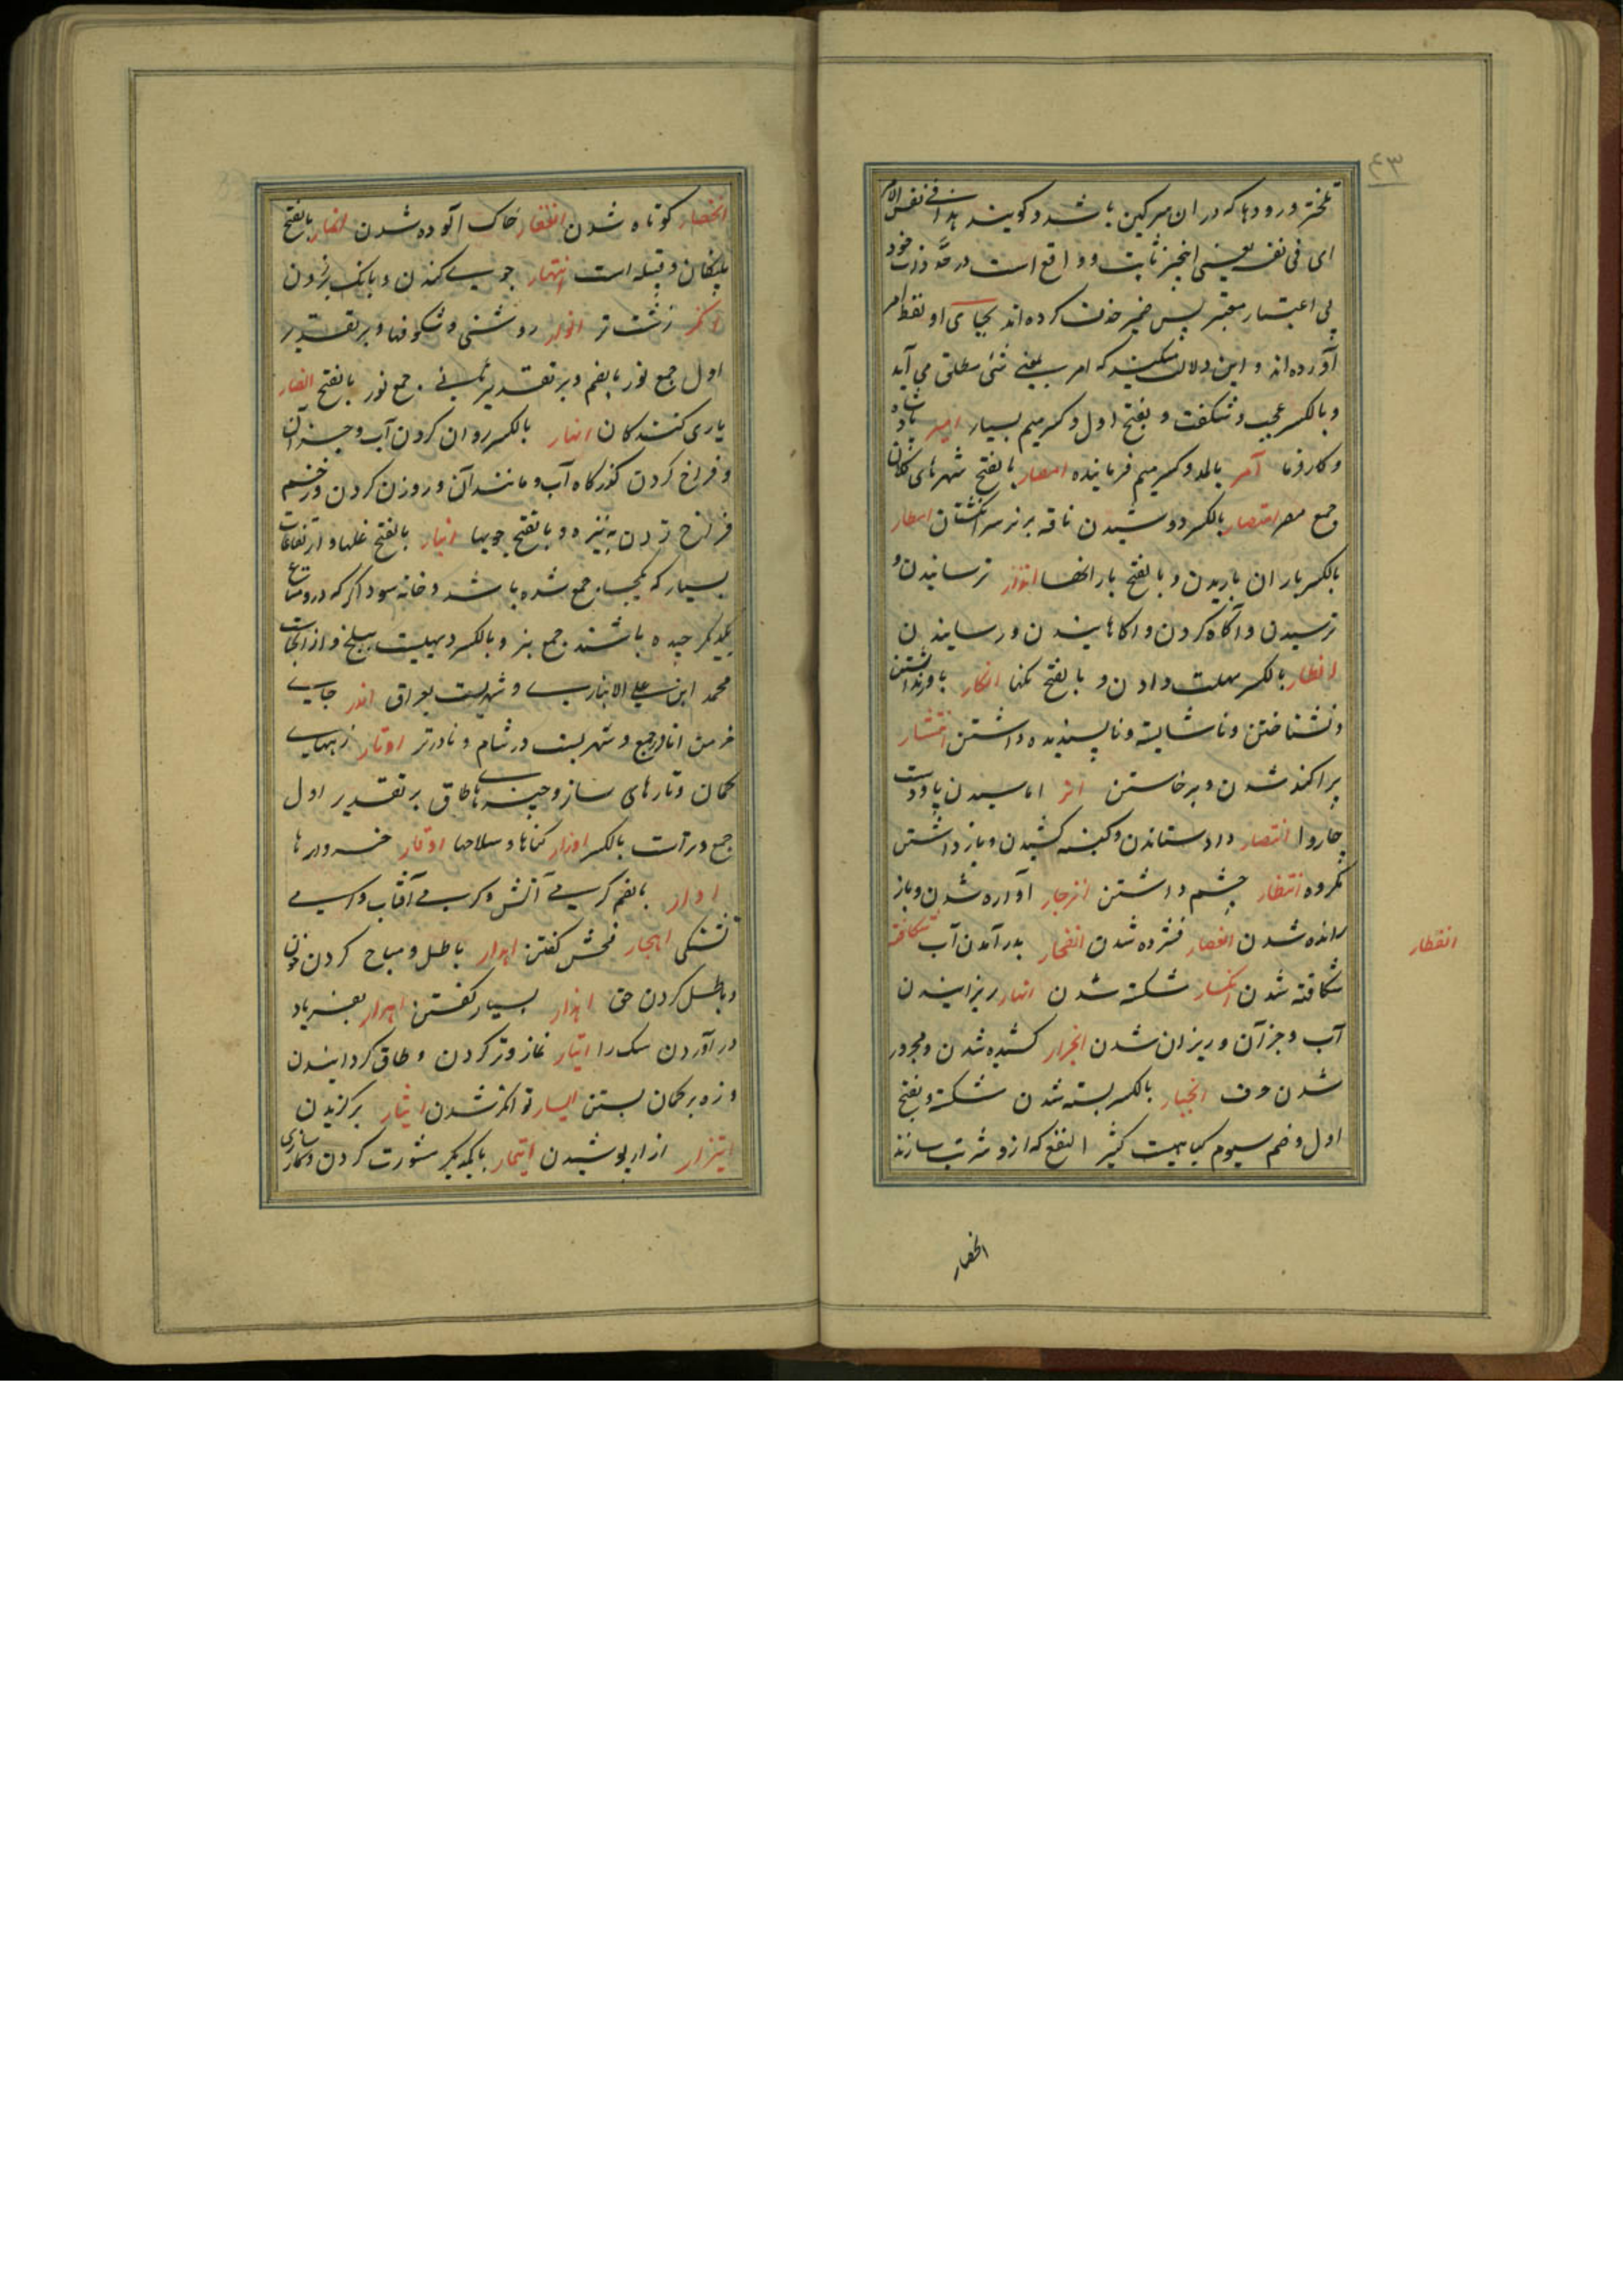 ۴۳
تلختر و رودها که در ان سرکین باشد و کویند هذا فی نفس الامر
ای فی نفسه یعنی انچیز ثابت و واقع است در حد ذات خود
بی اعتبار معتبر پس ضمیر حذف کرده اند بجای او لفظ امر
آورده اند و این دلالت میکند که امر بمعنی شئ مطلق می آید
و بالکسر عجب و شکفت و بفتح اول و کسر میم بسیار امیر پادشاه
و کارفرما آمر بالمد و کسر میم فرماینده امصار بالفتح شهرهای کلان
جمع مصر امتصار بالکسر دوشیدن ناقه بر سر انکشتان امطار
بالکسر باران باریدن و بالفتح بارانها انذار ترسانیدن و
ترسیدن و آکاه کردن و اکاهانیدن و رسانیدن
انظار بالکسر مهلت دادن و بالفتح انکار باور نداشتن
و نشناختن و ناشایسته و ناپسندیده داشتن انتشار
پراکنده شدن و برخاستن اماسیدن پا و دست
چاروا انتصار داد ستاندن و کینه کشیدن و باز داشتن
مکروه انتظار چشم داشتن انزجار آواره شدن و باز
رانده شدن انعصار فشرده شدن انفجار بدر آمدن آب شکافته
انفطار
شکافته شدن انکسار شکسته شدن انهار ریزانیدن
آب و جز آن و ریزان شدن انجرار کشیده شدن و مجرور
شدن حرف انجبار بالکسر بسته شدن شکسته و بفتح
اول و ضم سیوم کیاهیست کثیر النفع که ازو شربت سازند
انحصار
انحصار کوتاه شدن انعفار خاک آلوده شدن انمار بالفتح
پلنکان و قبیله است انتهار جوی کندن و بانک بر زدن
انکر زشت تر انوار روشنی و شکوفها و بر تقدیر
اول جمع نور بالضم و بر تقدیر ثانی جمع نور بالفتح انصار
یاری کنندکان انهار بالکسر روان کردن آب و جز آن
و فراخ کردن کذرکاه آب و مانند آن و روزن کردن و زخم
فراخ زدن به نیزه و بالفتح جویها انبار بالفتح غلها و ارتفاعات
بسیار که یکجا جمع شده باشد و خانه سوداکر که درو متاع
یکدیکر چیده باشند جمع نبر و بالکسر دیهیست ببلخ و از انجاست
محمد ابن علی الانباری و شهریست بعراق اندر جای
خرمن انادر جمع و شهریست در شام و نادرتر اوتار زههای
کمان و تارهای ساز و چیزهای طاق بر تقدیر اول
جمع وتر است بالکسر اوزار کناها و سلاحها اوقار خروارها
اوار بالضم کرمی آتش و کرمی آفتاب و
تشنکی اهجار فحش کفتن اهدار باطل و مباح کردن خون
و باطل کردن حق اهذار بسیار کفتن اهرار بفریاد
در آوردن سک را ایتار نماز وتر کردن و طاق کردانیدن
و زه بر کمان بستن ایسار توانکر شدن ایثار برکزیدن
ایتزار ازار پوشیدن ایتمار با یکدیکر مشورت کردن و کار سازی